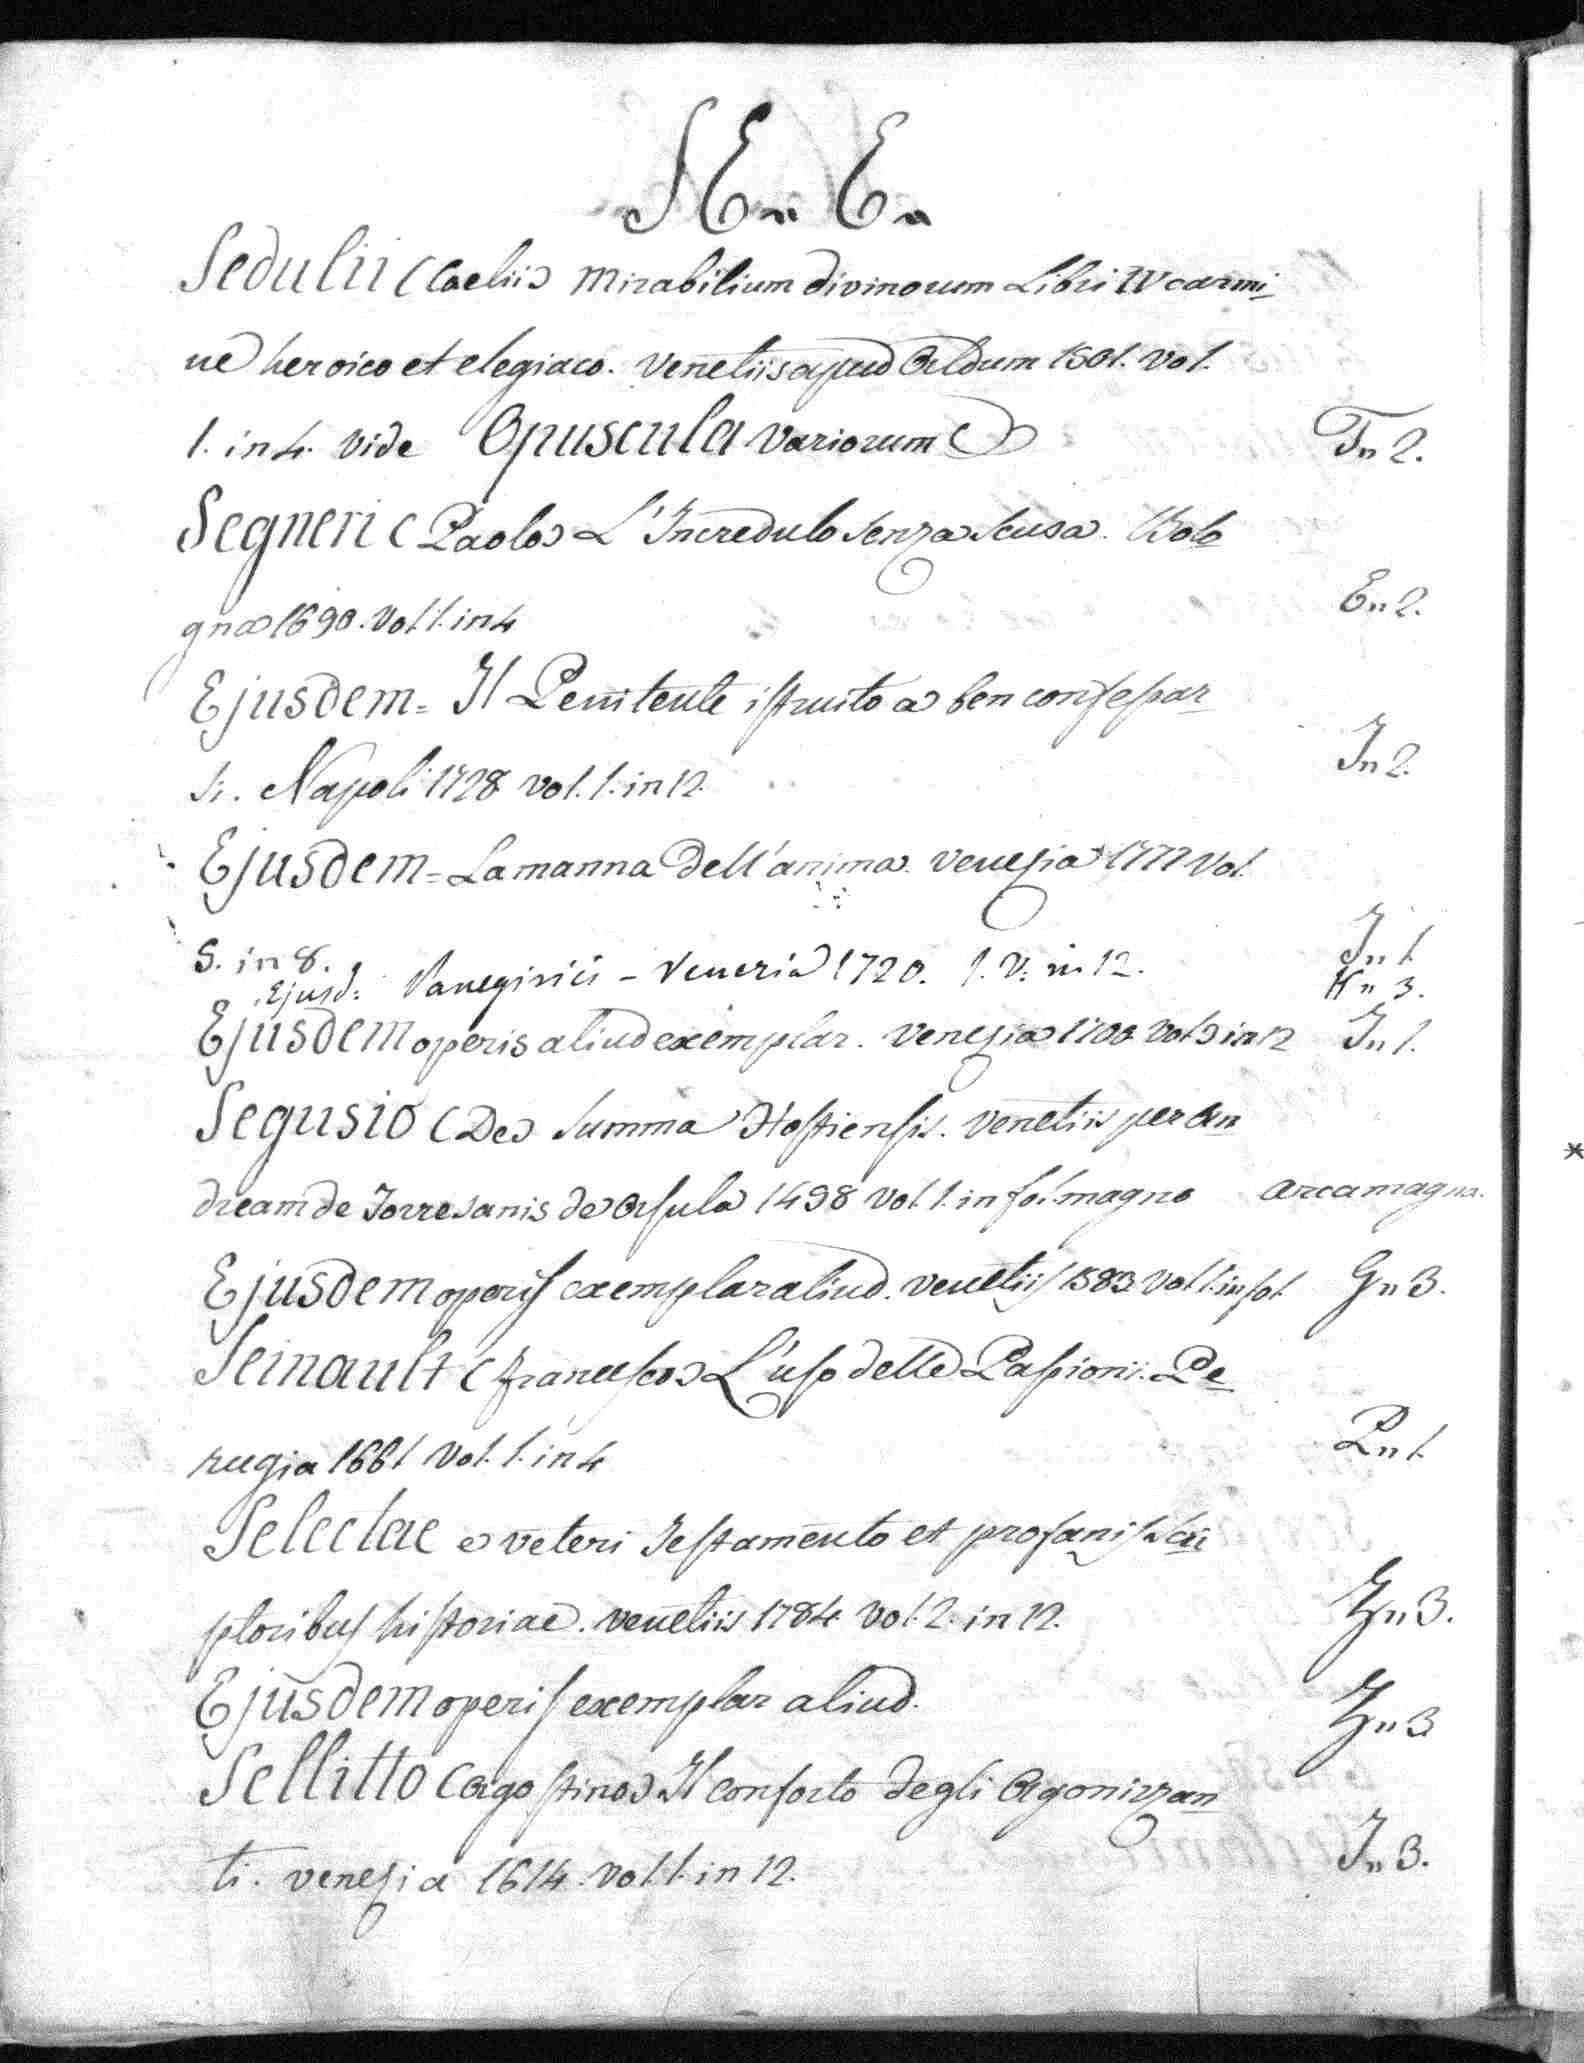 S E„ E„
Sedulii (Caelii) Mirabilium divinorum Libri IV carmi
ne heroico et elegiaco. Venetiis apud Aldum 1501. Vol.
1. in 4. Vide Opuscula variorum T„ 2.
Segneri (Paolo) L'Incredulo senza scusa. Bolo
gna 1690. Vol. 1. in 4 E„ 2.
Ejusdem = Il Penitente istruito a ben confessar
si. Napoli 1728 vol. 1. in 12. I„ 2.
Ejusdem = La manna dell'anima. Venezia 1777 Vol.
5. in 8. I„ 1
Ejusd: Panegirici - Veneria 1720. 1. V. in 12. K„ 3.
Ejusdem operis aliud exemplar. Venezia 1700 Vol 3 in 12 I„ 1.
Segusio (De) Summa Hostiensis. Venetiis per An
dream de Torresanis de Asula 1498 Vol. 1. in fol. magno Arca magna.
Ejusdem operis exemplar aliud. Venetiis 1583 Vol 1. in fol. G„ 3.
Seinault (Francesco) L'uso delle Passioni. Pe
rugia 1661 Vol. 1. in 4 P„ 1.
Selectae e veteri Testamento et profanis Scri
ptoribus historiae. Venetiis 1784 Vol. 2. in 12. Z„ 3.
Ejusdem operis exemplar aliud. Z„ 3
Sellitto (Agostino) Il conforto degli Agonizzan
ti. Venezia 1614. Vol. 1. in 12. I„ 3.